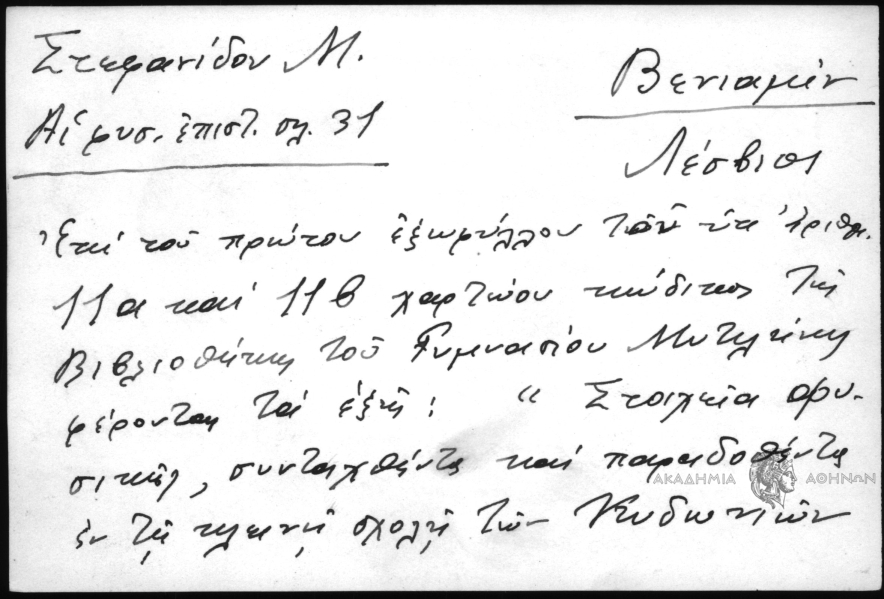 Στεφανίδου Μ.
Αἱ φυσ. ἐπιστ. σλ. 31
Βενιαμὶν
Λέσβιος
Ἐπὶ τοῦ πρώτου ἐξωφύλλου τοῦ ὑπ' ἀριθμ.
11α καὶ 11β χαρτώου κώδικος τῆς
Βιβλιοθήκης τοῦ Γυμνασίου Μυτιλήνης
φέρονται τὰ ἑξῆς: " Στοιχεῖα φυ-
σικῆς, συνταχθέντα καὶ παραδοθέντα
ἐν τῇ κλεινῇ σχολῇ τῶν Κυδωνιῶν
ΑΚΑΔΗΜΙΑ ΑΘΗΝΩΝ